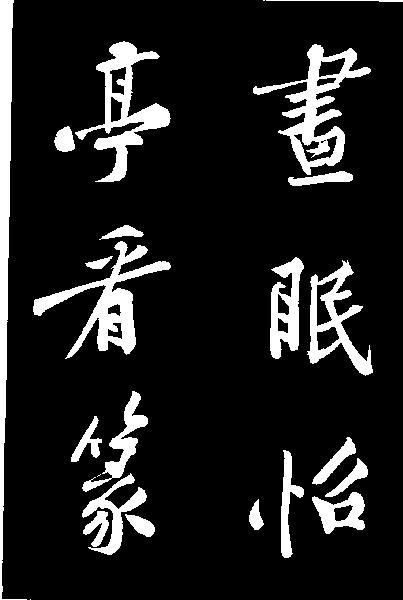 晝眠怡
亭看篆